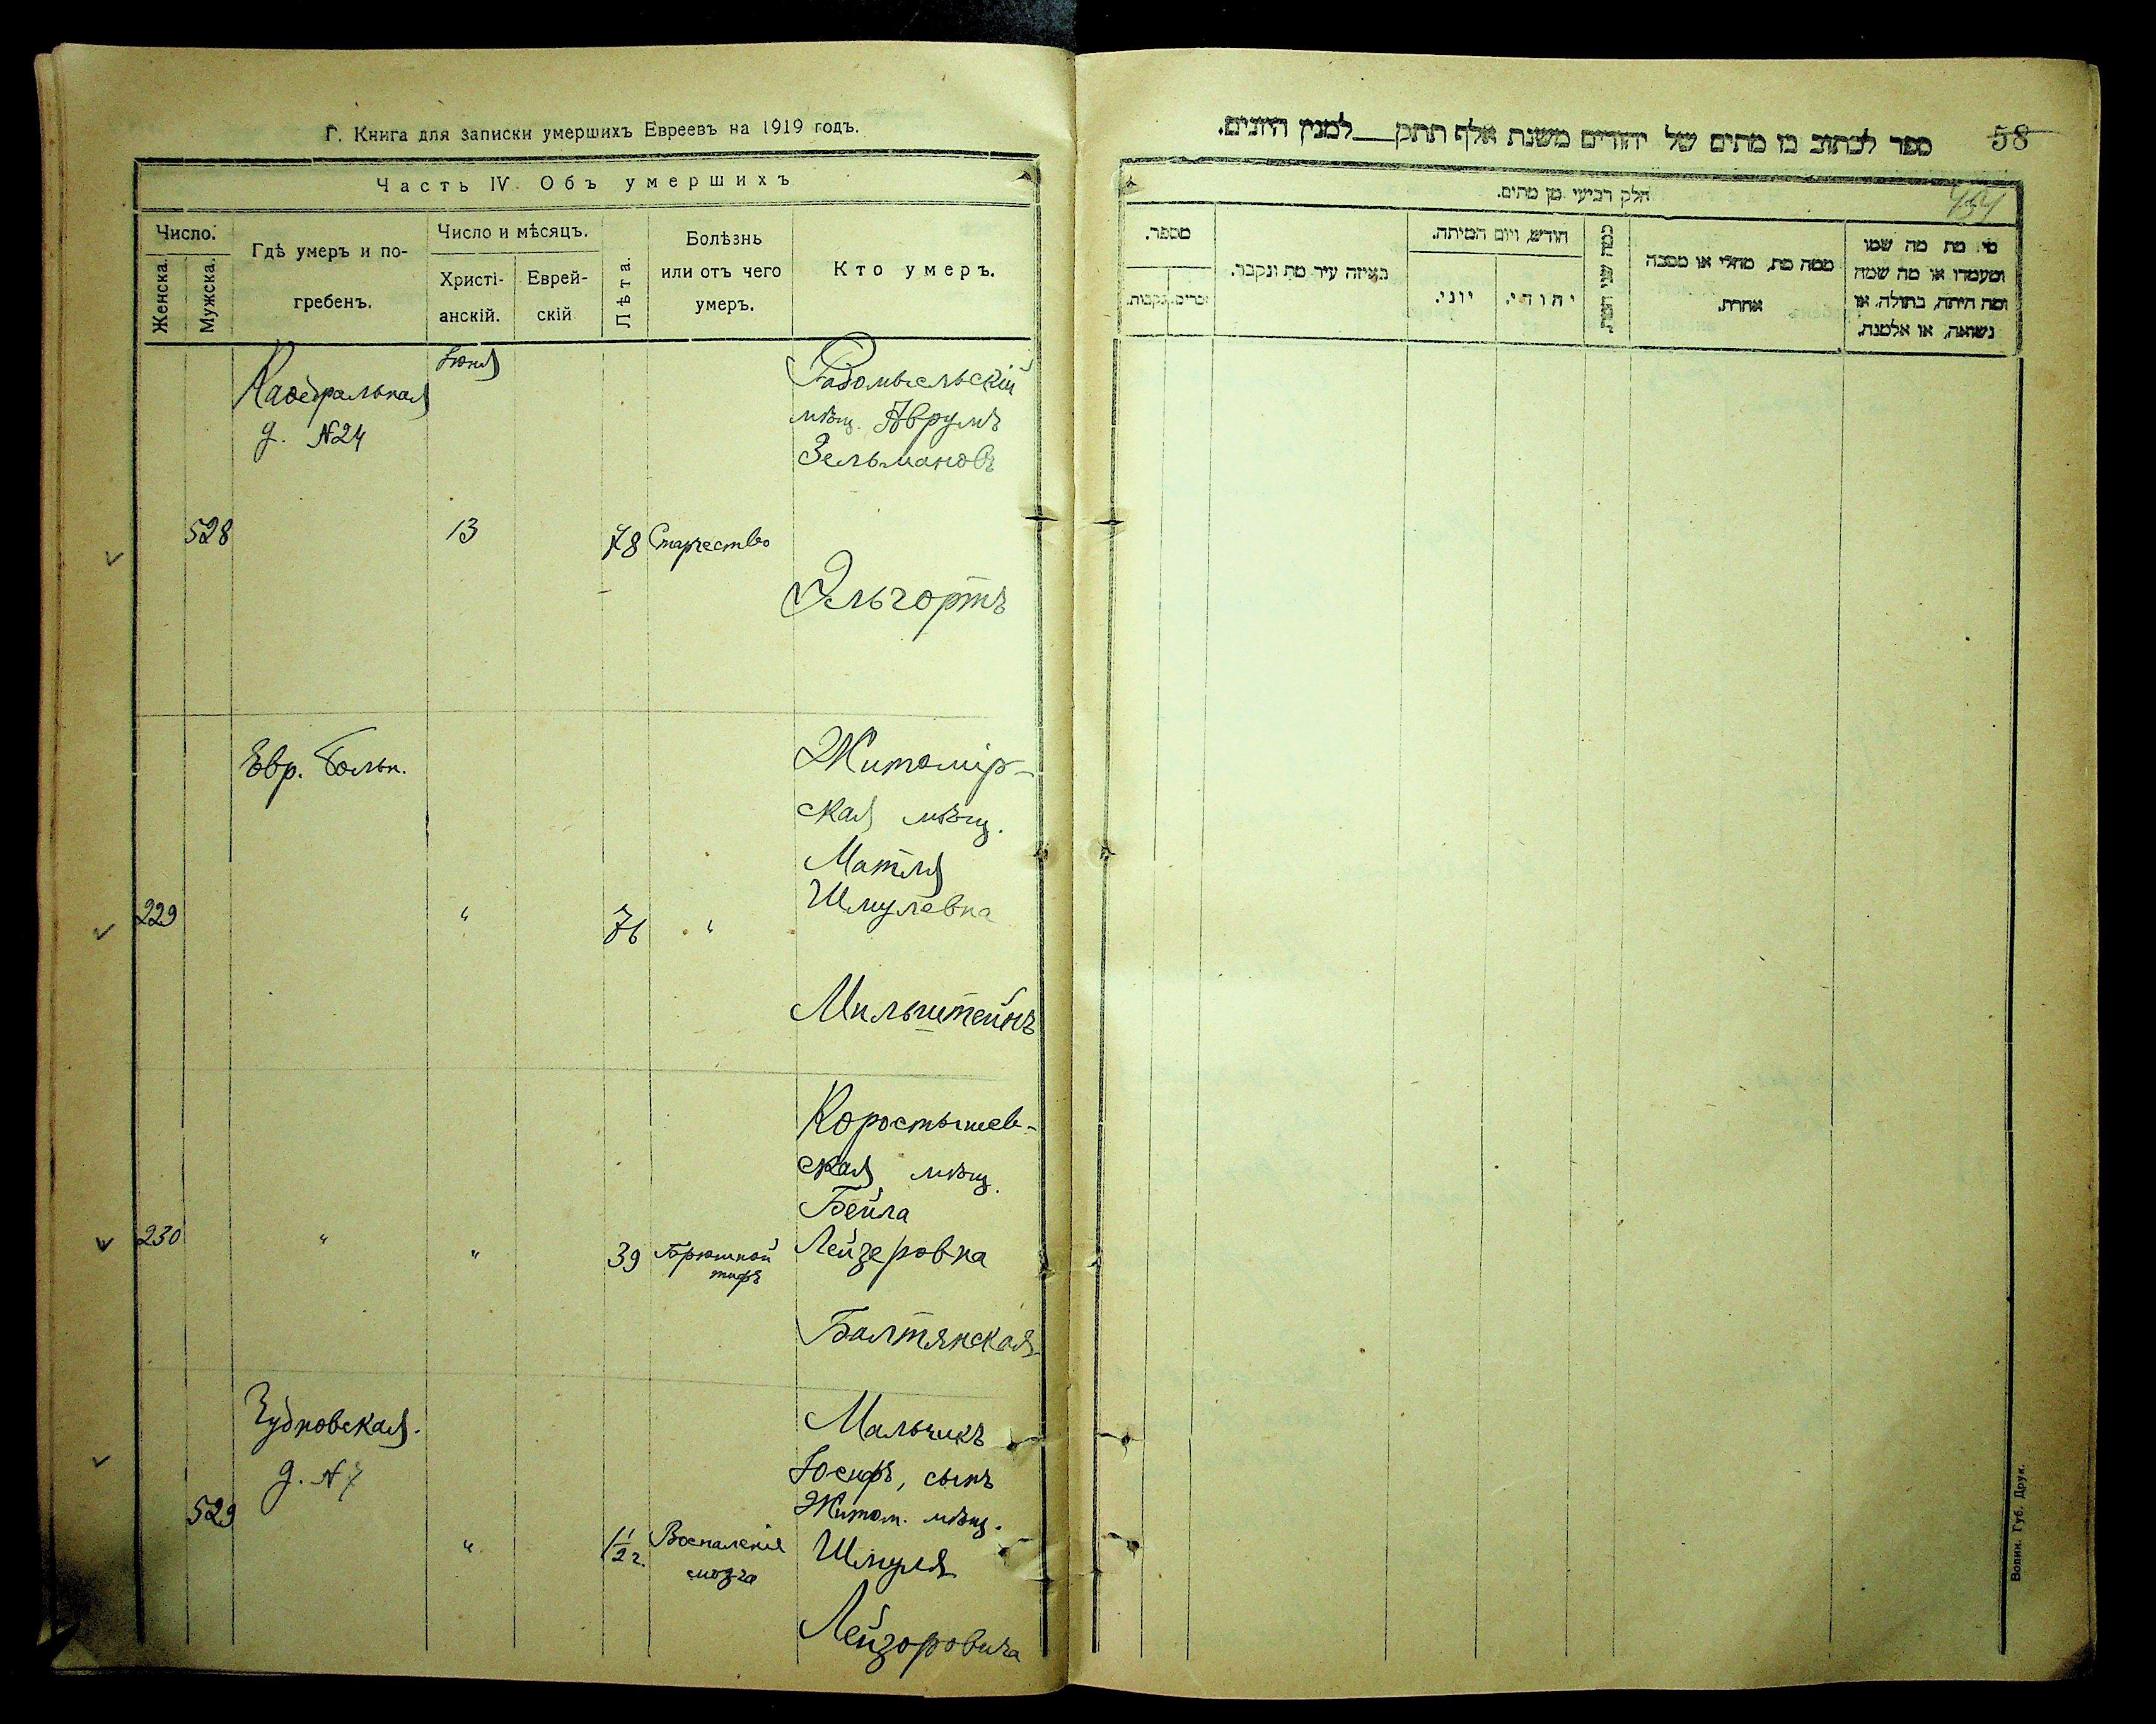 Г. Книга для записки умершихъ Евреевъ на 1919 годъ.
Часть IV. Объ умершихъ
Число.
Женска.
Мужска.
Гдѣ умеръ и по-
гребенъ.
Число и мѣсяцъ.
Христі-
анскій.
Еврей-
скій
Лѣта.
Болѣзнь
или отъ чего
умеръ.
Кто умеръ.
Іюня
Каѳедральная
д. №24
528
13
78
Старчество
Радомысльскій
мѣщ. Аврумъ
Зельмановъ
Эльгортъ
Евр. Больн.
229
"
76
"
Житомір-
ская мѣщ.
Матля
Шмулевна
Мильштейнъ
230
"
"
39
Брюшной
тифъ
Коростышев-
ская мѣщ.
Бейла
Лейзеровна
Балтянская
Чудновская.
д. №7
529
"
1 1/2 г.
Воспаленіе
мозга
Мальчикъ
Іосифъ, сынъ
Житом. мѣщ.
Шмуля
Лейзоровича
58
ספר לכתוב בו מתים של יהודים משנת אלף תתקן__למנין היונים.
חלק רביעי מן מתים.
מספר.
זכרים.
נקבות.
באיזה עיר מת ונקבר.
חודש, ויום המיתה.
יוני.
יהודי.
כמה שני המת
ממה מת, מחלי או מסבה
אחרת.
מי מת מה שמו
ומעמדו או מה שמה
ומה היתה, בתולה, או
נשואה, או אלמנה.
Волин. Губ. Друк.